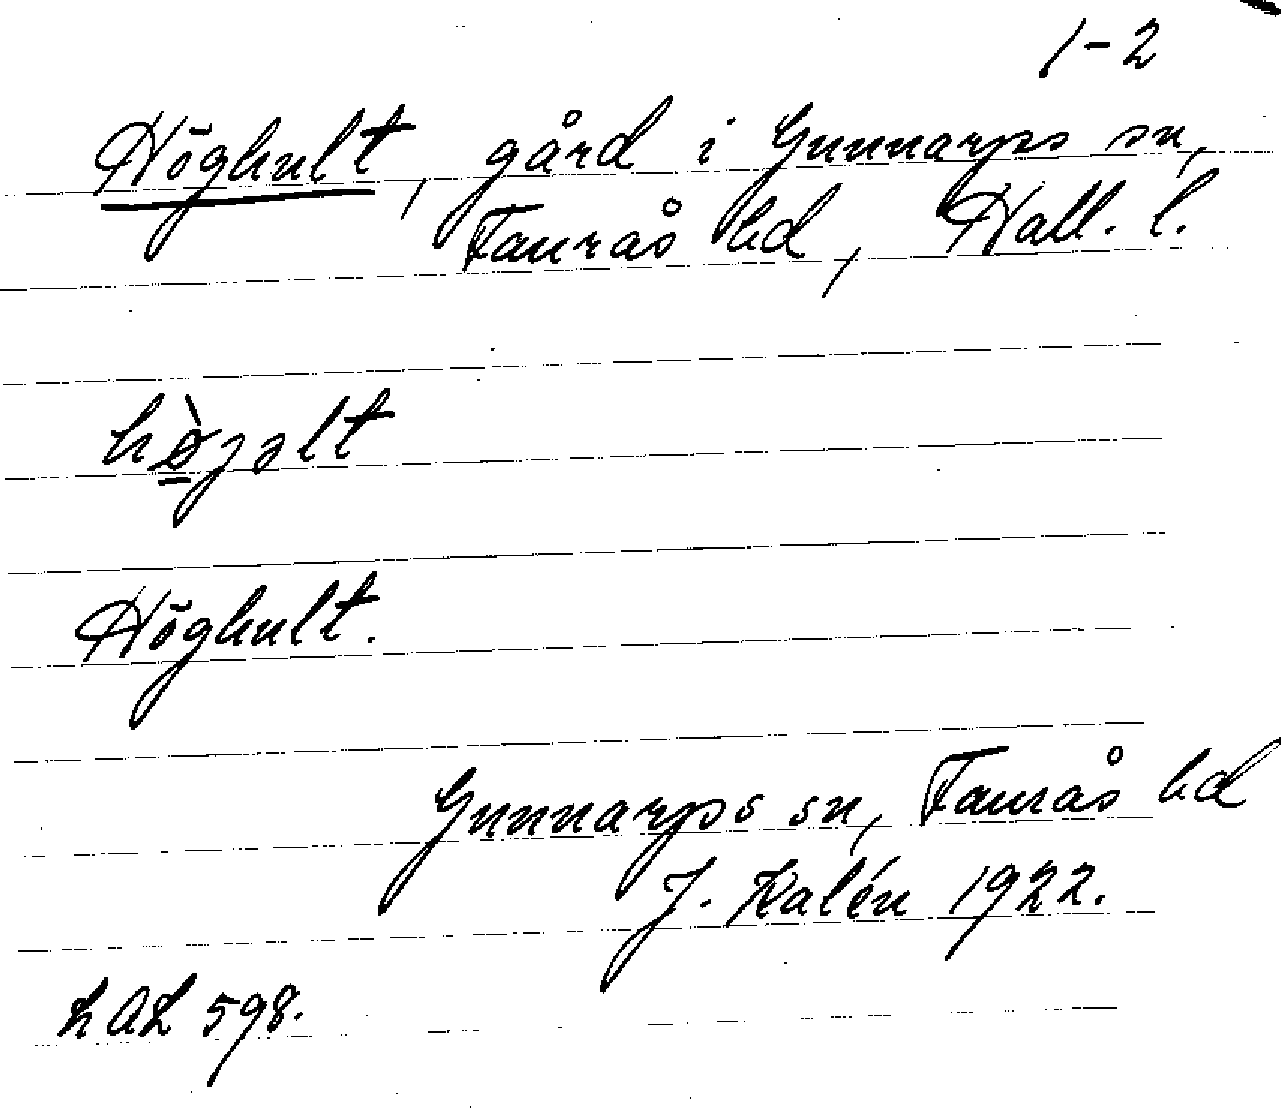 1-2
Höghult, gård i Gunnarps sn,
Faurås hd, Hall. l.
hø̀jəlt
Höghult.
Gunnarps sn, Faurås hd
J. Kalén 1922.
LAL 598.